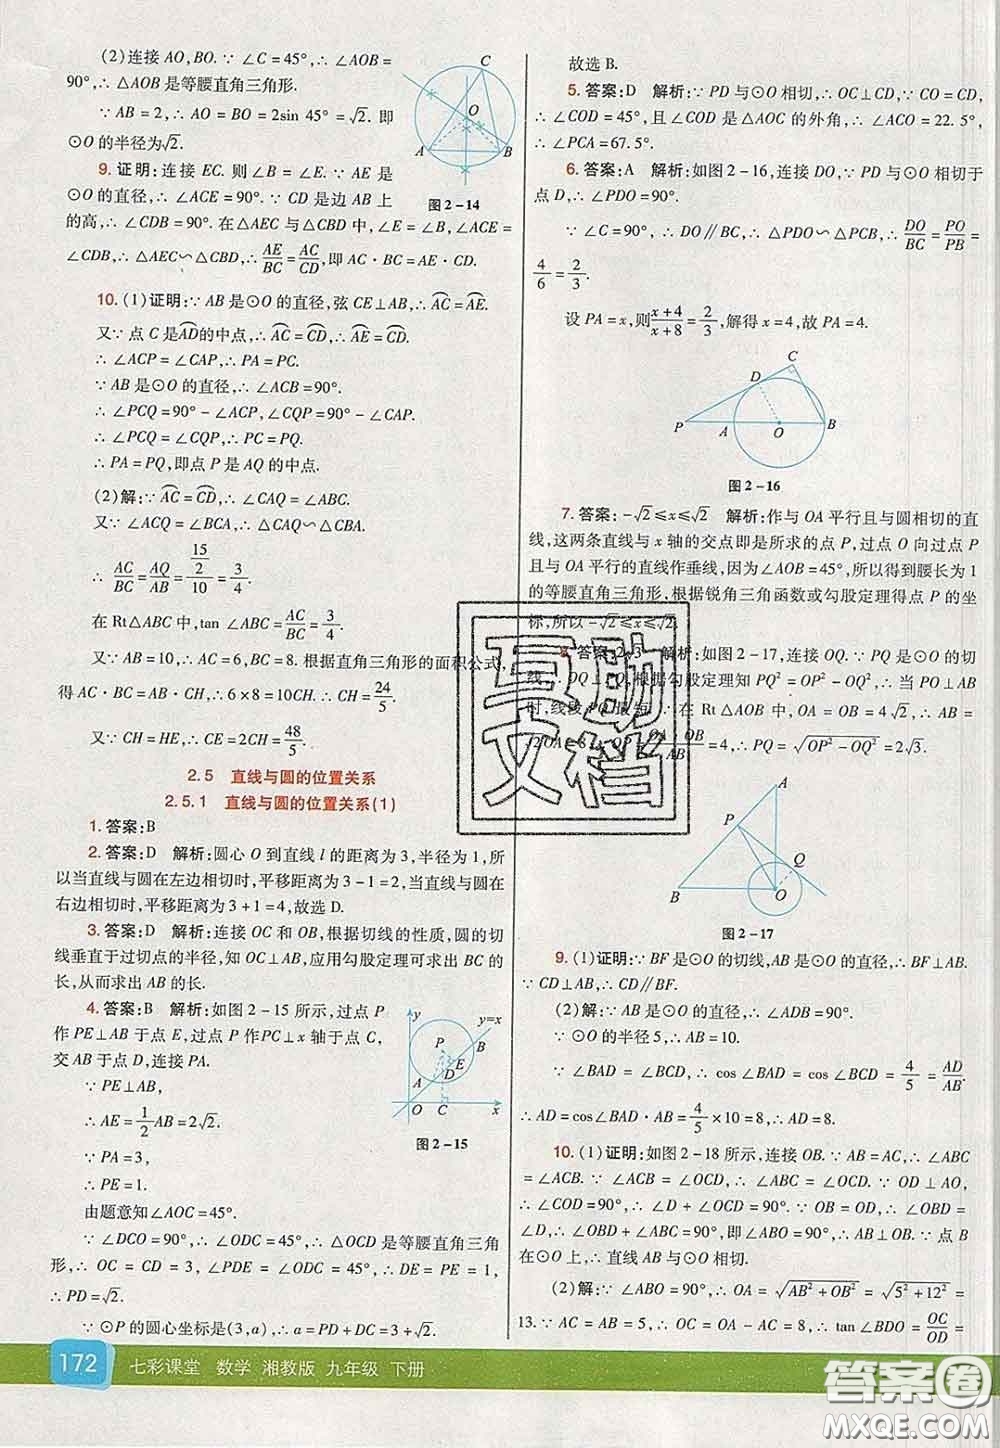 (2)连接 AO,BO.∵∠C=45°,∴∠AOB=
90°,∴△AOB 是等腰直角三角形.
∵AB=2,∴AO=BO=2sin 45°=√2. 即
⊙O 的半径为√2.
9. 证明:连接 EC. 则∠B=∠E.∵AE 是
⊙O 的直径,∴∠ACE=90°.∵CD 是边 AB 上
的高,∴∠CDB=90°. 在△AEC 与△CBD 中,∠E=∠B,∠ACE
=∠CDB,∴△AEC∽△CBD,∴AE/BC=AC/CD,即 AC·BC=AE·CD.
10. (1)证明:∵AB 是⊙O 的直径,弦 CE⊥AB,∴AC⌒=AE⌒.
又∵点 C 是AD⌒的中点,∴AC⌒=CD⌒,∴AE⌒=CD⌒.
∴∠ACP=∠CAP,∴PA=PC.
∵AB 是⊙O 的直径,∴∠ACB=90°.
∴∠PCQ=90°-∠ACP,∠CQP=90°-∠CAP.
∴∠PCQ=∠CQP,∴PC=PQ.
∴PA=PQ,即点 P 是 AQ 的中点.
(2)解:∵AC⌒=CD⌒,∴∠CAQ=∠ABC.
又∵∠ACQ=∠BCA,∴△CAQ∽△CBA.
∴AC/BC=AQ/AB=(15/2)/10=3/4.
在 Rt△ABC 中,tan∠ABC=AC/BC=3/4.
又∵AB=10,∴AC=6,BC=8. 根据直角三角形的面积公式,
得 AC·BC=AB·CH,∴6×8=10CH.∴CH=24/5.
又∵CH=HE,∴CE=2CH=48/5.
2.5 直线与圆的位置关系
2.5.1 直线与圆的位置关系(1)
1. 答案:B
2. 答案:D 解析:圆心 O 到直线 l 的距离为 3,半径为 1,所
以当直线与圆在左边相切时,平移距离为 3-1=2,当直线与圆在
右边相切时,平移距离为 3+1=4,故选 D.
3. 答案:D 解析:连接 OC 和 OB,根据切线的性质,圆的切
线垂直于过切点的半径,知 OC⊥AB,应用勾股定理可求出 BC 的
长,从而求出 AB 的长.
4. 答案:B 解析:如图 2-15 所示,过点 P
作 PE⊥AB 于点 E,过点 P 作PC⊥x 轴于点 C,
交 AB 于点 D,连接 PA.
∵PE⊥AB,
∴AE=1/2AB=2√2.
∵PA=3,
∴PE=1.
由题意知∠AOC=45°.
∵∠DCO=90°,∴∠ODC=45°,∴△OCD 是等腰直角三角
形,∴OC=CD=3,∠PDE=∠ODC=45°,∴DE=PE=1,
∴PD=√2.
∵⊙P 的圆心坐标是(3,a),∴a=PD+DC=3+√2.
C
O
A
B
图 2-14
y
y=x
P
B
E
D
A
O
C
x
图 2-15
故选 B.
5. 答案:D 解析:∵PD 与⊙O 相切,∴OC⊥CD,∵CO=CD,
∴∠COD=45°,且∠COD 是△AOC 的外角,∴∠ACO=22.5°,
∴∠PCA=67.5°.
6. 答案:A 解析:如图 2-16,连接 DO,∵PD 与⊙O 相切于
点 D,∴∠PDO=90°.
∵∠C=90°,∴DO∥BC,∴△PDO∽△PCB,∴DO/BC=PO/PB=
4/6=2/3.
设 PA=x,则(x+4)/(x+8)=2/3,解得 x=4,故 PA=4.
C
D
P
A
O
B
图 2-16
7. 答案:-√2≤x≤√2 解析:作与 OA 平行且与圆相切的直
线,这两条直线与 x 轴的交点即是所求的点 P,过点 O 向过点 P
且与 OA 平行的直线作垂线,因为∠AOB=45°,所以得到腰长为 1
的等腰直角三角形,根据锐角三角函数或勾股定理得点 P 的坐
标,所以-√2≤x≤√2.
8. 答案:2√3 解析:如图 2-17,连接 OQ.∵PQ 是⊙O 的切
线,∴OQ⊥PQ.根据勾股定理知 PQ²=OP²-OQ²,∴当 PO⊥AB
时,线段 PQ 最短.∵在 Rt△AOB 中,OA=OB=4√2,∴AB=
√2OA=8,∴OP=OA·OB/AB=4,∴PQ=√(OP²-OQ²)=2√3.
A
P
Q
B
O
图 2-17
9. (1)证明:∵BF 是⊙O 的切线,∴BF⊥AB.
∵CD⊥AB,∴CD∥BF.
(2)解:∵AB 是⊙O 的直径,∴∠ADB=90°.
∵⊙O 的半径 5,∴AB=10.
∵∠BAD=∠BCD,∴cos∠BAD=cos∠BCD=4/5=AD/AB.
∴AD=cos∠BAD·AB=4/5×10=8,∴AD=8.
10. (1)证明:如图 2-18 所示,连接 OB.∵AB=AC,∴∠ABC
=∠ACB.∵∠ACB=∠OCD,∴∠ABC=∠OCD.∵OD⊥AO,
∴∠COD=90°,∴∠D+∠OCD=90°.∵OB=OD,∴∠OBD=
∠D,∴∠OBD+∠ABC=90°,即∠ABO=90°,∴AB⊥OB.∵点 B
在⊙O 上,∴直线 AB 与⊙O 相切.
(2)解:∵∠ABO=90°,∴OA=√(AB²+OB²)=√(5²+12²)=
13.∵AC=AB=5,∴OC=OA-AC=8,∴tan∠BDO=OC/OD=
互助
文档
172 七彩课堂 数学 湘教版 九年级 下册
答案圈
MXQE.COM